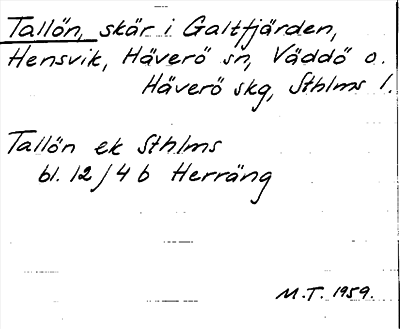 Tallön, skär i Galtfjärden,
Hensvik, Häverö sn, Väddö o.
Häverö skg, Sthlms l.
Tallön ek Sthlms
bl. 12/4 b Herräng
M.T. 1959.